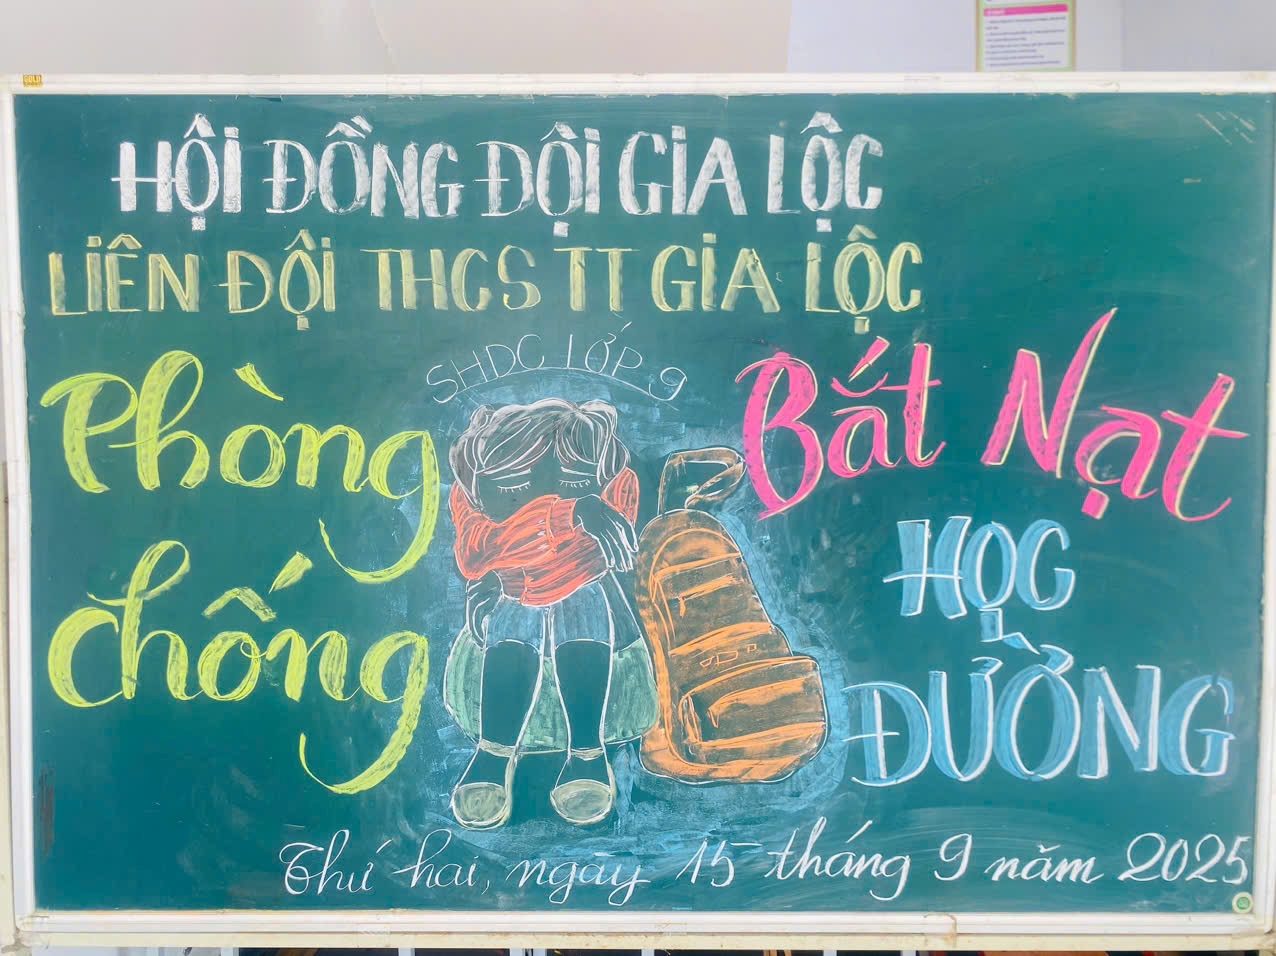 HỘI ĐỒNG ĐỘI GIA LỘC
LIÊN ĐỘI THCS TT GIA LỘC
SHDC LỚP 9
Phòng
chống
Bắt Nạt
HỌC
ĐƯỜNG
Thứ hai, ngày 15 tháng 9 năm 2025